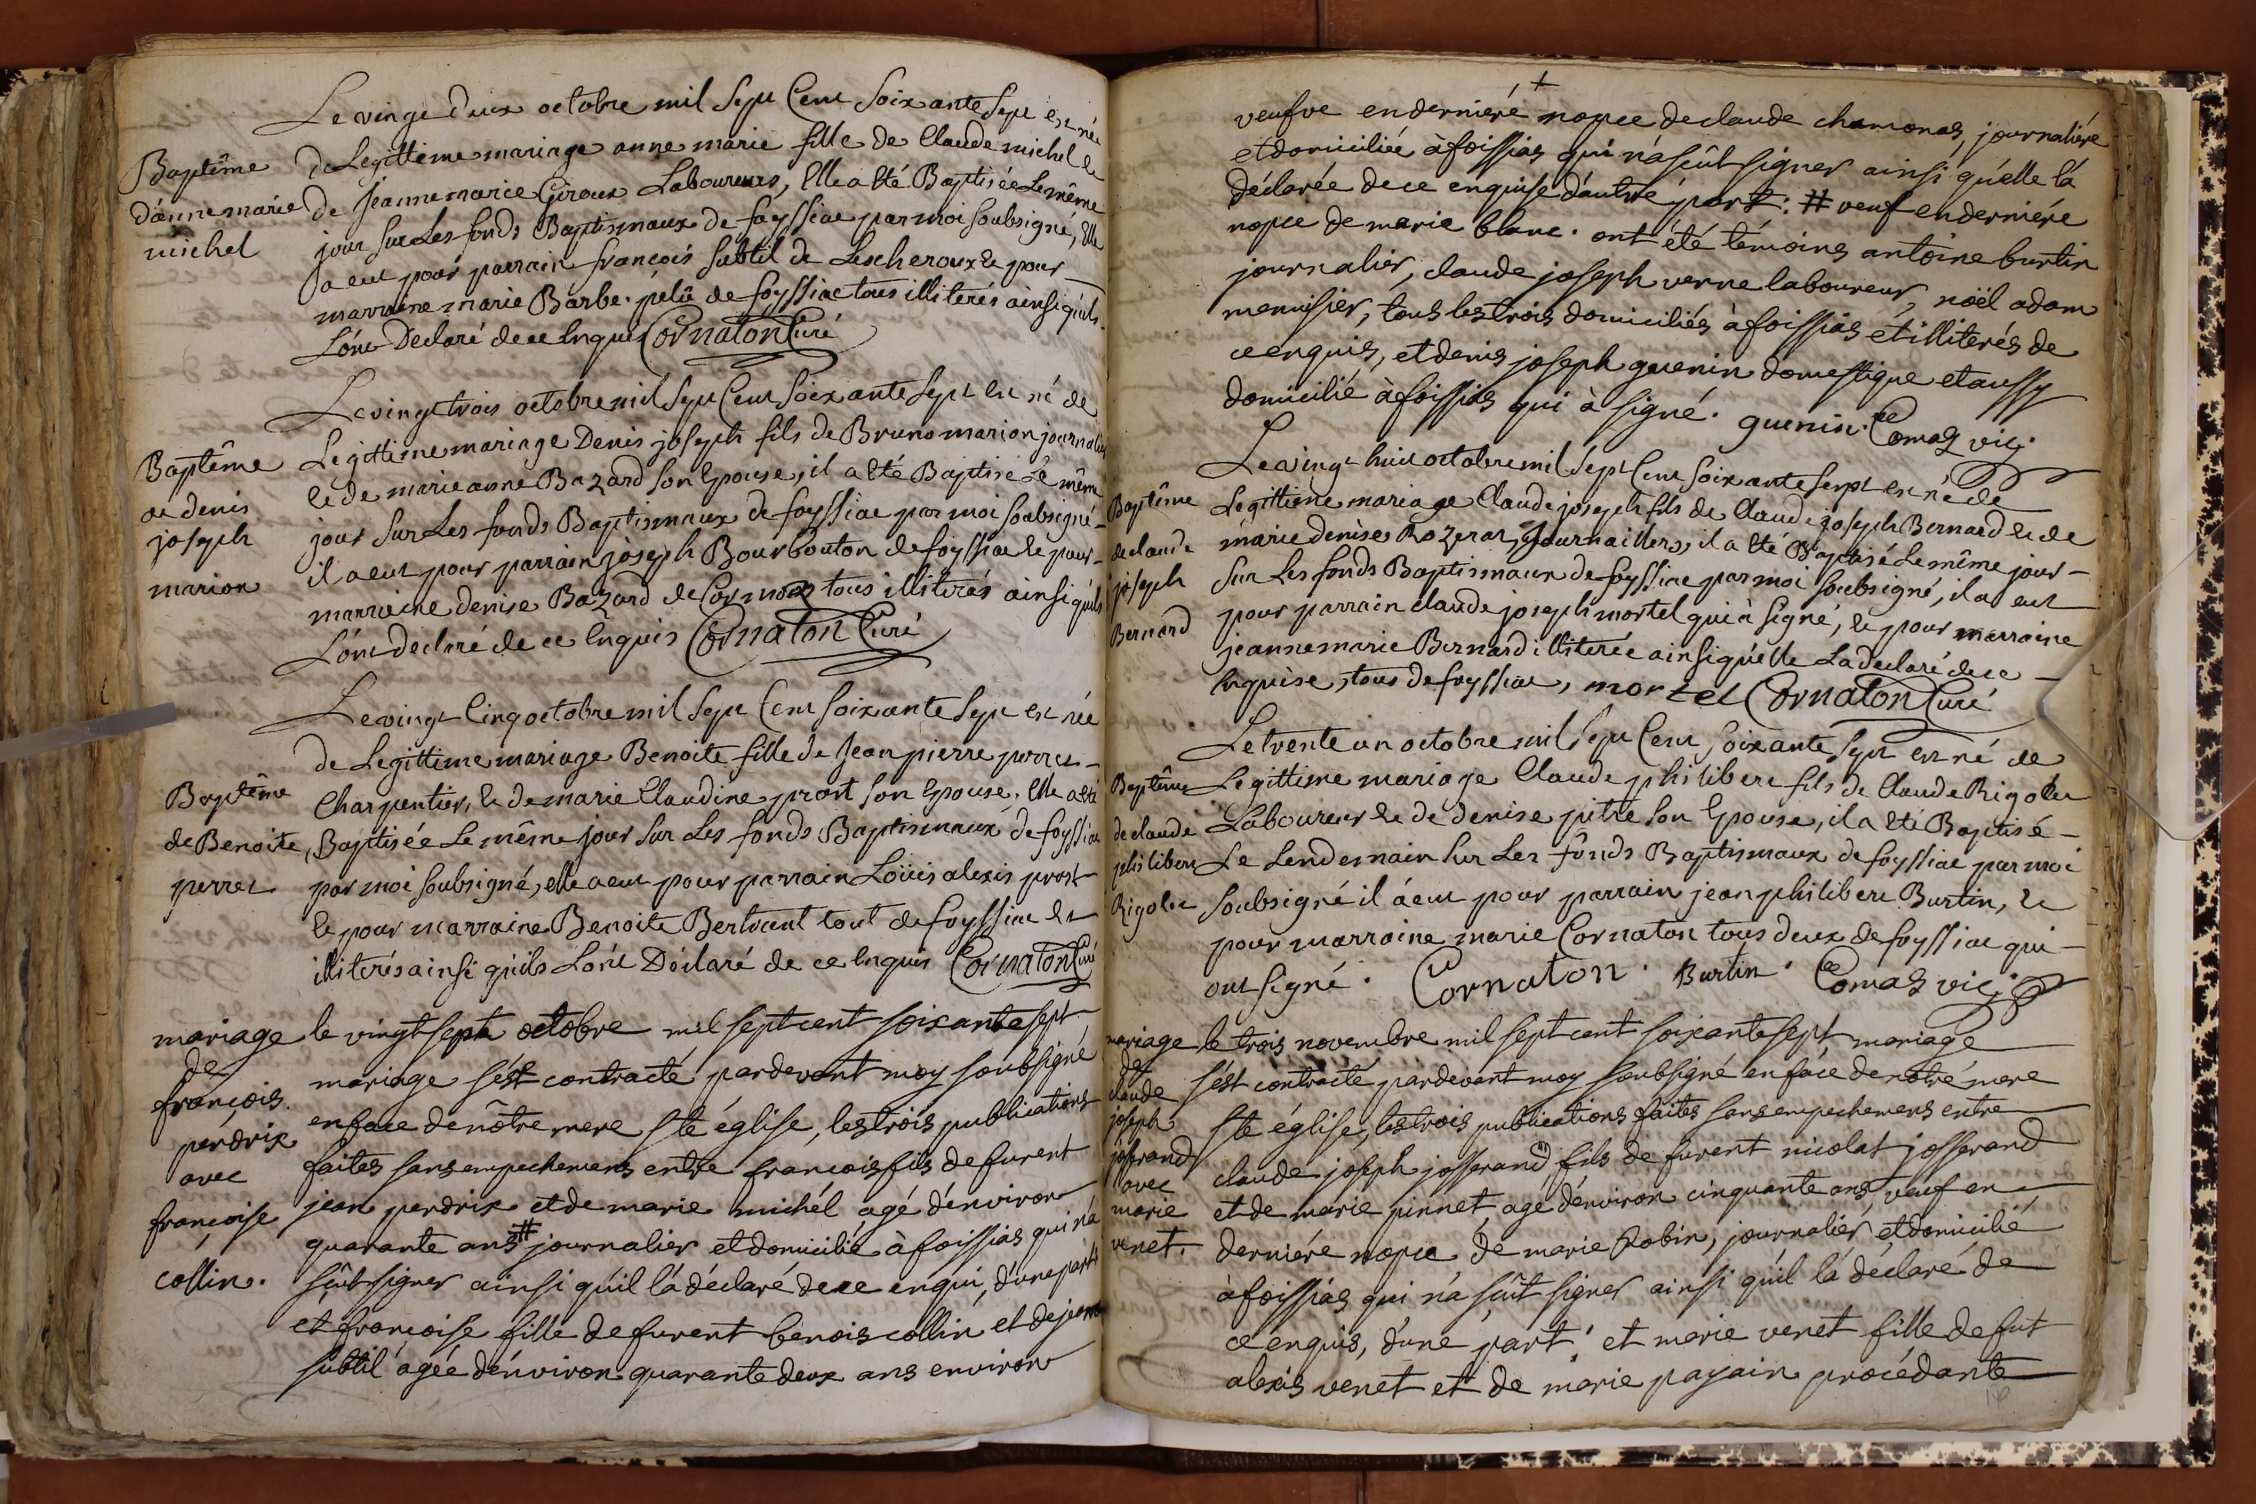 Le vingt deux octobre mil Sept Cent Soixante Sept est née
Baptême
d'anne marie
michel
de Legittime mariage anne marie fille de Claude michel et
de Jeanne marie Giroux Laboureurs, Elle a été Baptisée Le même
jour sur Les fonds Baptismaux de foyssiac par moi soubsigné, Elle
a eut pour parrain françois subtil de Lescheroux et pour
marraine marie Barbe pelû de foyssiac tous illiterés ainsi qu'ils
L'ont Déclaré de ce Enquis Cornaton Curé
Le vingt trois octobre mil Sept Cent Soixante Sept est né de
Baptême
de denis
joseph
marion
Legittime mariage Denis joseph fils de Bruno marion journalier
et de marie anne Bazard son Epouse, il a été Baptisé Le même
jour sur Les fonds Baptismaux de foyssiac par moi soubsigné
il a eut pour parrain joseph Bourbouton de foyssiac et pour
marraine denise Bazard de Cormoz tous illiterés ainsi qu'ils
L'ont Declaré de ce Enquis Cornaton Curé
Le vingt Cinq octobre mil Sept Cent soixante Sept est née
Baptême
de Benoite
perret
de Legittime mariage Benoite fille de Jean pierre perret
Charpentier, et de marie Claudine prost son Epouse, Elle a été
Baptisée Le même jour sur Les fonds Baptismaux de foyssiac
par moi soubsigné, elle a eut pour parrain Loüis alexis prost
et pour marraine Benoite Bertrant tout de foyssiac et
illiterés ainsi qu'ils L'ont Déclaré de ce Enquis Cornaton Curé
mariage
de
françois
perdrix
avec
françoise
collin.
le vingt septe octobre mil sept cent soixante sept
mariage s'est contracté pardevant moy soubsigné
en face de nôtre mere ste église, les trois publications
faites sans empechemens entre francois fils de furent
jean perdrix et de marie michél agé d'environ
quarante ans # journalier et domicilié à foissias qui n'a
sût signer ainsi qu'il l'a déclaré de ce enqui, d'une part
et françoise fille de furent benois collin et de jeanne
subtil agée d'environ quarante deux ans environ
+
veufve en derniere nopce de claude chamonas, journaliére
et domiciliée à foissias qui n'a sçût signer ainsi qu'elle l'a
déclarée de ce enquise d'autre part: # veuf en derniére
nopce de marie blanc. ont été témoins antoine burtin
journalier, claude joseph verne laboureur, noël adam
menuisier, tous les trois domiciliés à foissias et illiterés de
ce enquis, et denis joseph guenin domestique et aussy
domicilié à foissias qui à signé. guenin. Comas vic.
Le vingt huit octobre mil Sept Cent soixante Sept est né de
Baptême
de claude
joseph
Bernard
Legittime mariage Claude joseph fils de Claude joseph Bernard et de
marie denise Rozerat, journailliers, il a été Baptisé Le même jour
sur Les fonds Baptismaux de foyssiac par moi soubsigné, il a eut
pour parrain claude joseph mortel qui à signé, et pour marraine
jeanne marie Bernard illiterée ainsi qu'elle L'a declaré de ce
enquise, tous de foyssiac, mortel Cornaton Curé
Le trente un octobre mil Sept Cent soixante Sept est né de
Baptême
de claude
philibert
Rigolet
Legittime mariage Claude philibert fils de Claude Rigolet
Laboureur et de denise pitre son Epouse, il a été Baptisé
Le Lendemain sur Les fônds Baptismaux de foyssiac par moi
soubsigné il á eut pour parrain jean philibert Burtin, et
pour marraine marie Cornaton tous deux de foyssiac qui
ont signé. Cornaton. Burtin. Comas vic.
mariage
de
claude
joseph
josserand
avec
marie
venet.
le trois novembre mil sept cent soixante sept mariage
s'est contracté pardevant moy soubsigné en face de nôtre mere
ste église, les trois publications faites sans empechemens entre
claude joseph josserand, fils de furent nicolat josserand
et de marie pinnet, age d'environ cinquante ans veuf en
derniére nopce de marie Robin, journalier, et domicilié
à foissias qui n'a sçût signer ainsi qu'il l'a déclaré de
ce enquis, d'une part, et marie venet fille de fut
alexis venet et de marie payain procédante